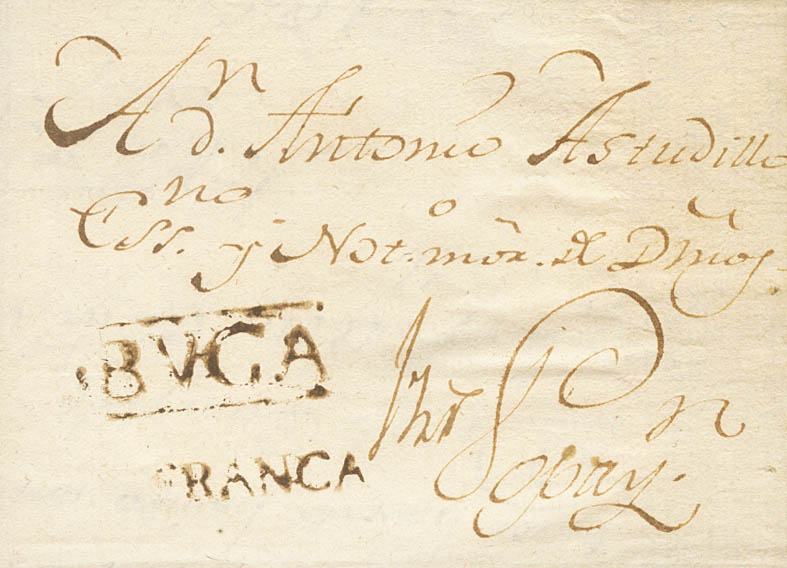 A^n
d. Antonio Astudillo
Ess.^no y Not.^o mõr. de D^mos.
BVGA
FRANCA
Popay.^n